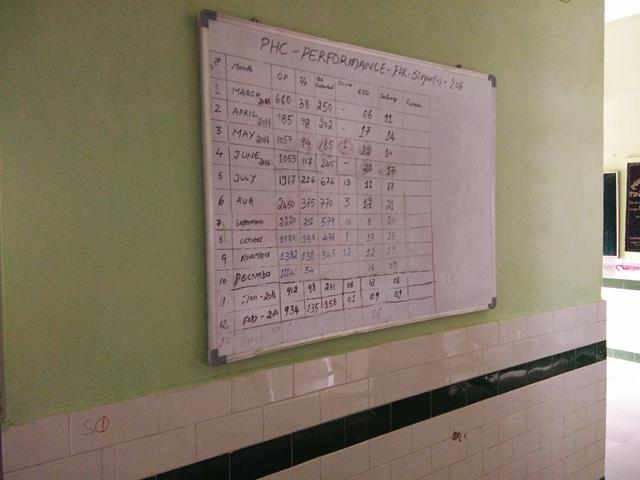 PHC-PERFORMANCE-PHC-Sirpur(u)-2016
Month OP I/P Collected Delivery Remark
1 MARCH 2016 660 38 250 - 06 11
2 APRIL 2016 785 98 202 - 17 14
3 MAY 2016 1057 94 185 1 22 14
4 JUNE 2016 1053 117 245 - 20 17
5 JULY 1917 226 676 13 11 17
6 AUG 2450 375 770 3 12 21
7 September 2220 579 10 8 20
8 October 1770 476 9 17 15
9 November 1382 138 345 12 19
10 December 1114 34 16 09
11 Jan-2016 912 98 271 06 12 08
12 Feb-2016 934 135 158 01 09 09
13
S1